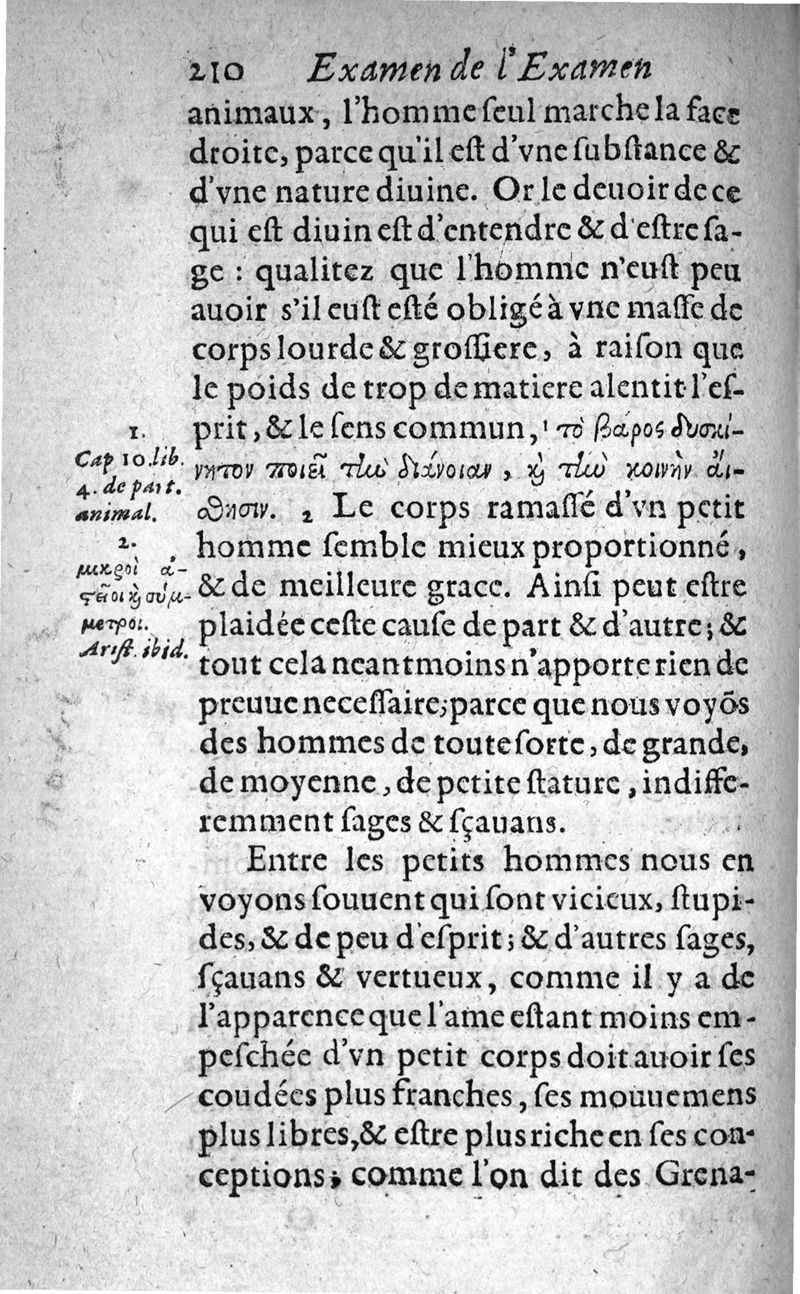 210 Examen de l'Examen
animaux, l'homme ſeul marche la face
droite, parce qu'il eſt d'vne ſubſtance &
d'vne nature diuine. Or le deuoir de ce
qui eſt diuin eſt d'entendre & d'eſtre ſa-
ge : qualitez que l'homme n'euſt peu
auoir s'il euſt eſté obligé à vne maſſe de
corps lourde & groſſiere, à raiſon que
le poids de trop de matiere alentit l'eſ-
prit, & le ſens commun, ¹ τὸ βάρος δυσκί-
νητον ποιεῖ τὴν διάνοιαν, ϗ τὴν κοινὴν αἴ-
σθησιν. 2 Le corps ramaſſé d'vn petit
homme ſemble mieux proportionné,
& de meilleure grace. Ainſi peut eſtre
plaidée ceſte cauſe de part & d'autre; &
tout cela neantmoins n'apporte rien de
preuue neceſſaire; parce que nous voyõs
des hommes de toute ſorte, de grande,
de moyenne, de petite ſtature, indiffe-
remment ſages & ſçauans.
Entre les petits hommes nous en
voyons ſouuent qui ſont vicieux, ſtupi-
des, & de peu d'eſprit; & d'autres ſages,
ſçauans & vertueux, comme il y a de
l'apparence que l'ame eſtant moins em-
peſchée d'vn petit corps doit auoir ſes
coudées plus franches, ſes mouuemens
plus libres, & eſtre plus riche en ſes con-
ceptions; comme l'on dit des Grena-
1.
Cap 10. lib.
4. de part.
animal.
2.
μικροὶ ἀ-
στεῖοι ϗ σύμ-
μετροι.
Ariſt. ibid.